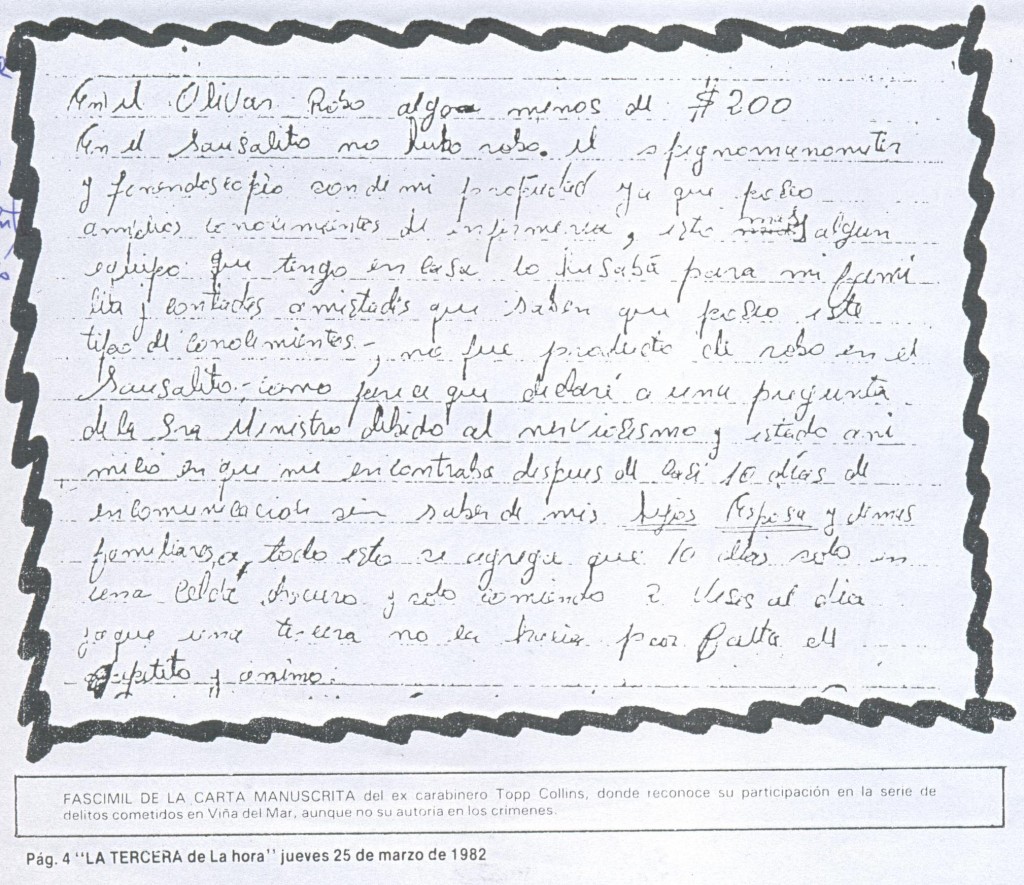 En el Olivar Robo algo menos de $200
En el Sausalito no hubo robo. el spignomanometer
y fonendoscopio son de mi propiedad ya que poseo
amplios conocimientos de enfermeria, esto mas algun
equipo que tengo en casa lo husaba para mi fami
lia y contadas amistades que saben que poseo este
tipo de conocimientos.- y no fue producto de robo en el
Sausalito.- como parece que declaré a una pregunta
de la Sra Ministro debido al nerviosismo y estado ani
mico en que me encontraba despues de casi 10 dias de
incomunicacion sin saber de mis hijos Esposa y demas
familiares, a todo esto se agrega que 10 dias solo en
una celda oscura y solo comiendo 2 veses al dia
ya que una tercera no la hacia por falta de
apetito y animo.
FASCIMIL DE LA CARTA MANUSCRITA del ex carabinero Topp Collins, donde reconoce su participación en la serie de
delitos cometidos en Viña del Mar, aunque no su autoría en los crímenes.
Pág. 4 "LA TERCERA de La hora" jueves 25 de marzo de 1982